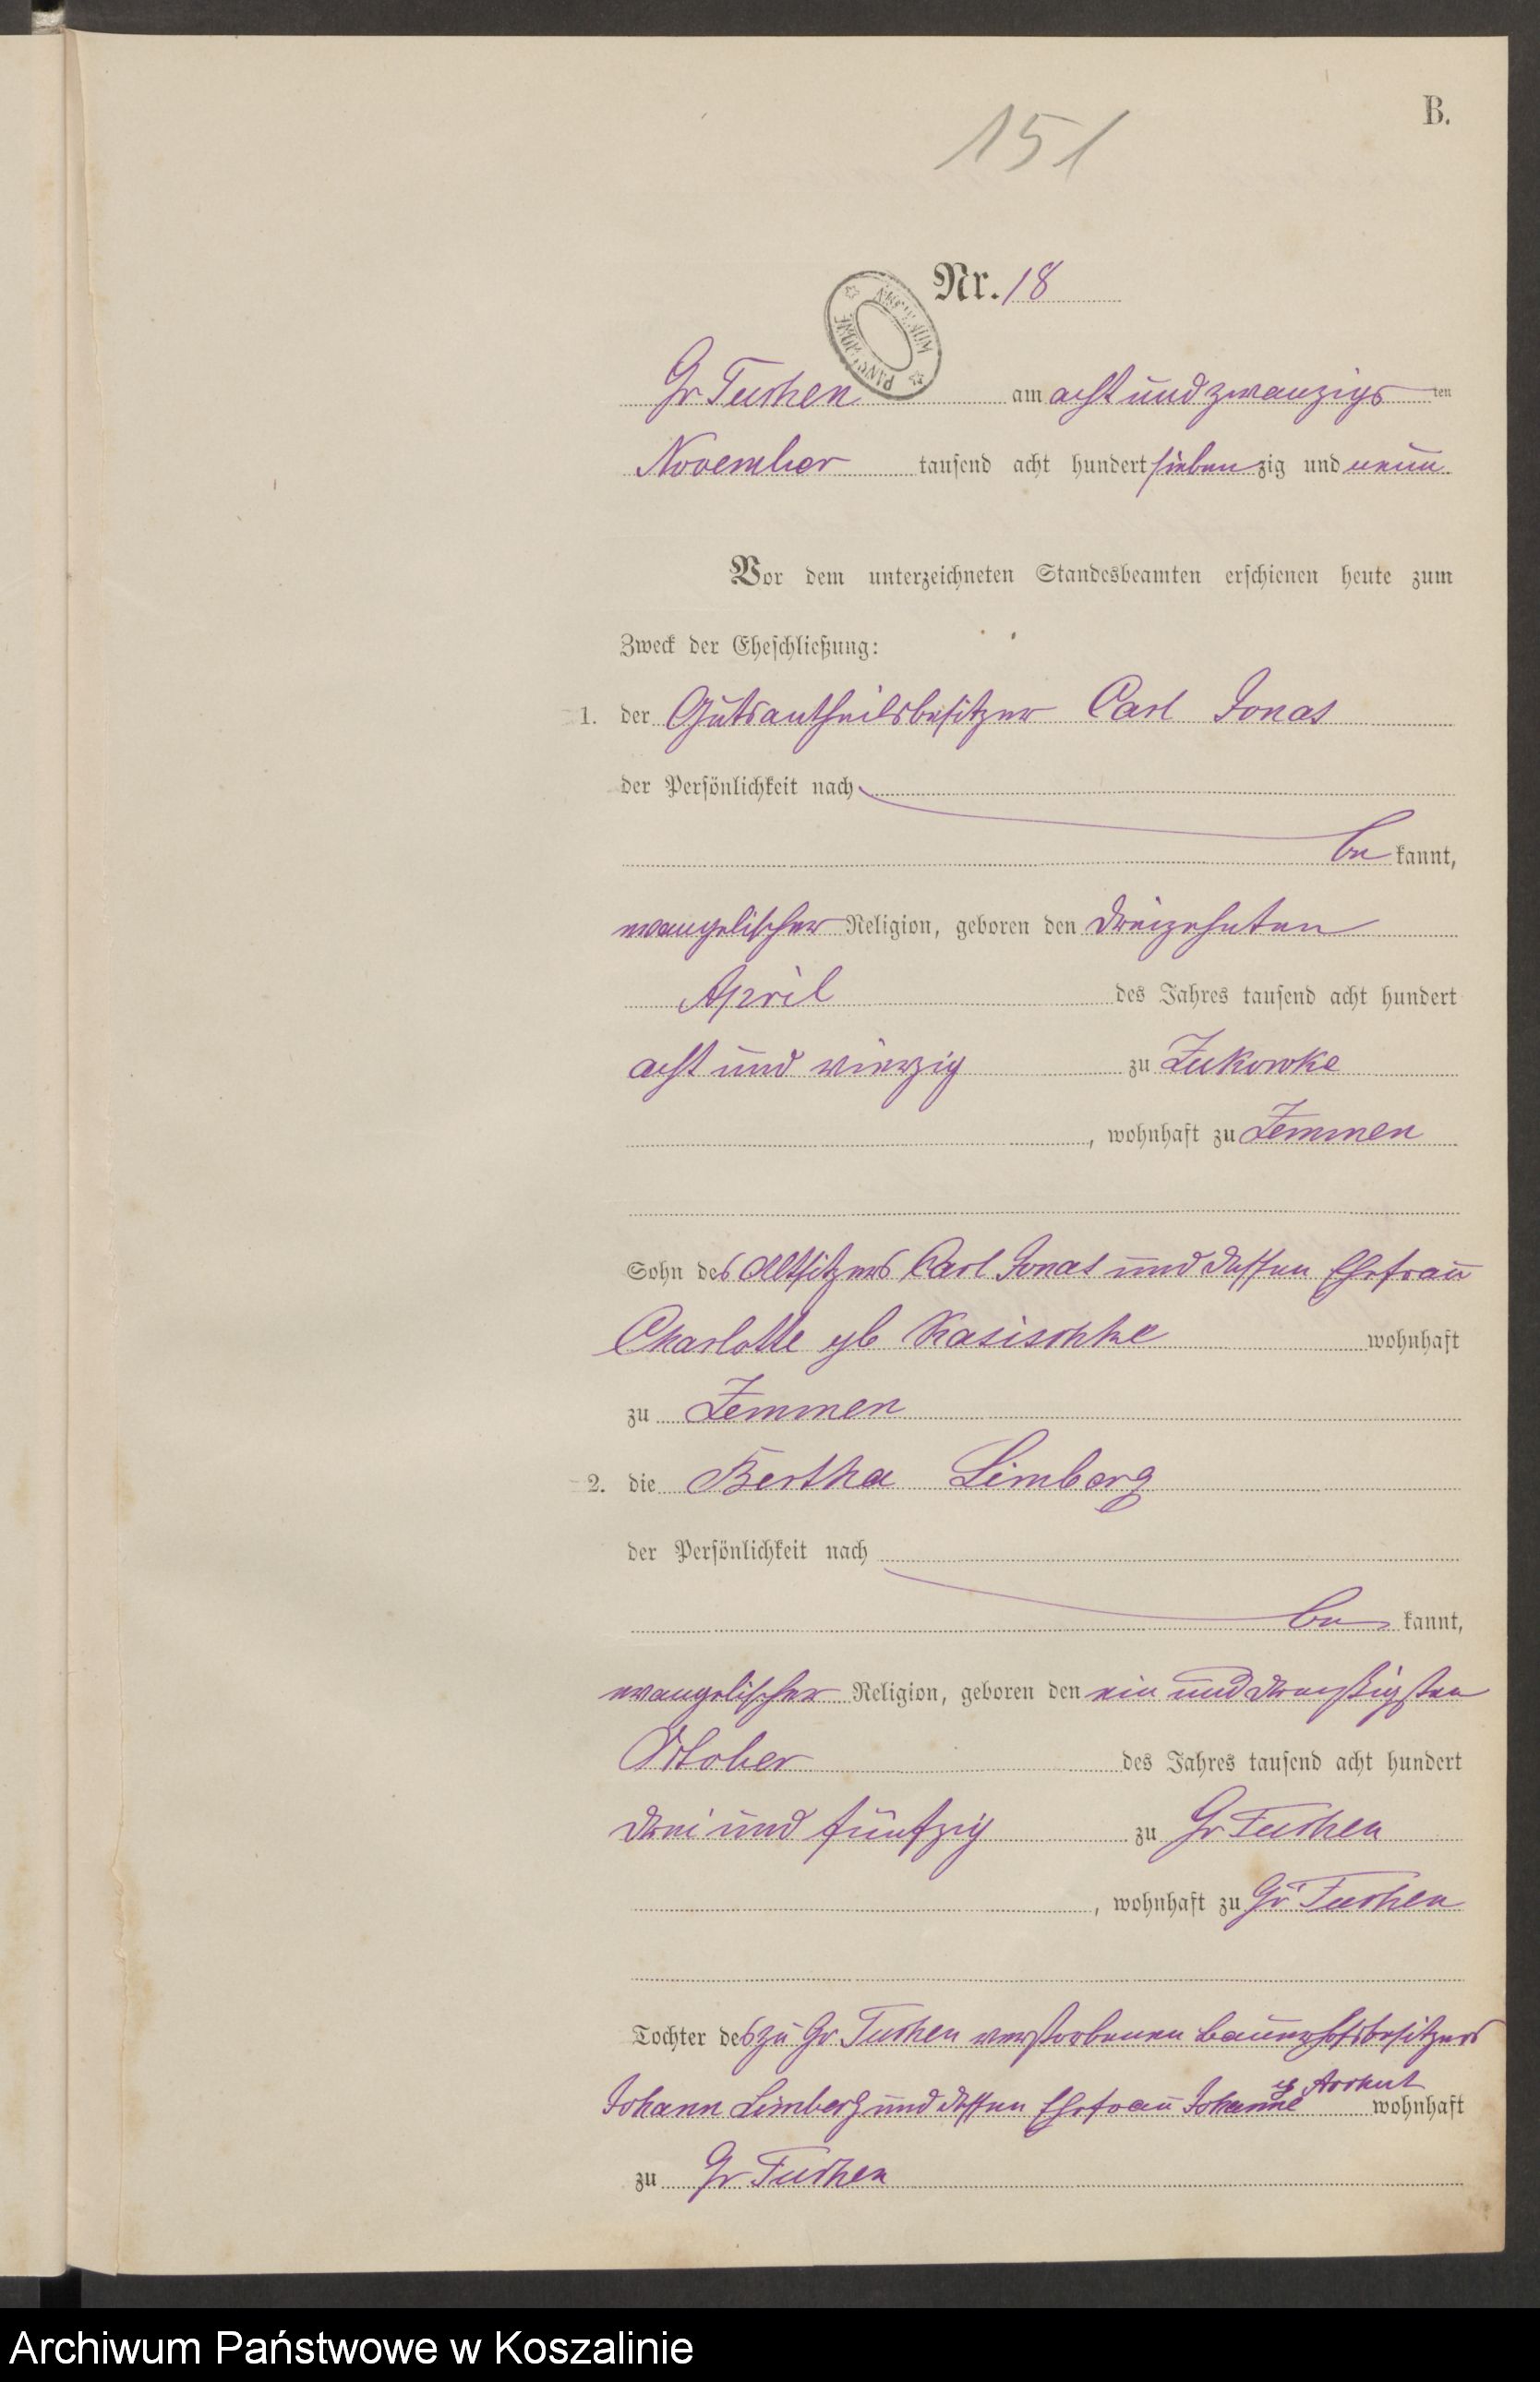 B.
151
Nr. 18
Gr Tuchen am acht und zwanzigs ten
November tausend acht hundert sieben zig und neun
Vor dem unterzeichneten Standesbeamten erschienen heute zum
Zweck der Eheschließung:
1. der Gutsantheilsbesitzer Carl Jonas
der Persönlichkeit nach
be kannt,
evangelischer Religion, geboren den dreizehnten
April des Jahres tausend acht hundert
acht und vierzig zu Zukowke
, wohnhaft zu Zemmen
Sohn des Altsitzers Carl Jonas und dessen Ehefrau
Charlotte gb Kasischke wohnhaft
zu Zemmen
2. die Bertha Limberg
der Persönlichkeit nach
be kannt,
evangelischer Religion, geboren den ein und dreißigsten
October des Jahres tausend acht hundert
drei und fünfzig zu Gr Tuchen
, wohnhaft zu Gr Tuchen
Tochter des zu Gr Tuchen verstorbenen Bauerhofsbesitzers
Johann Limberg und dessen Ehefrau Johanne wohnhaft
zu Gr Tuchen
Archiwum Państwowe w Koszalinie